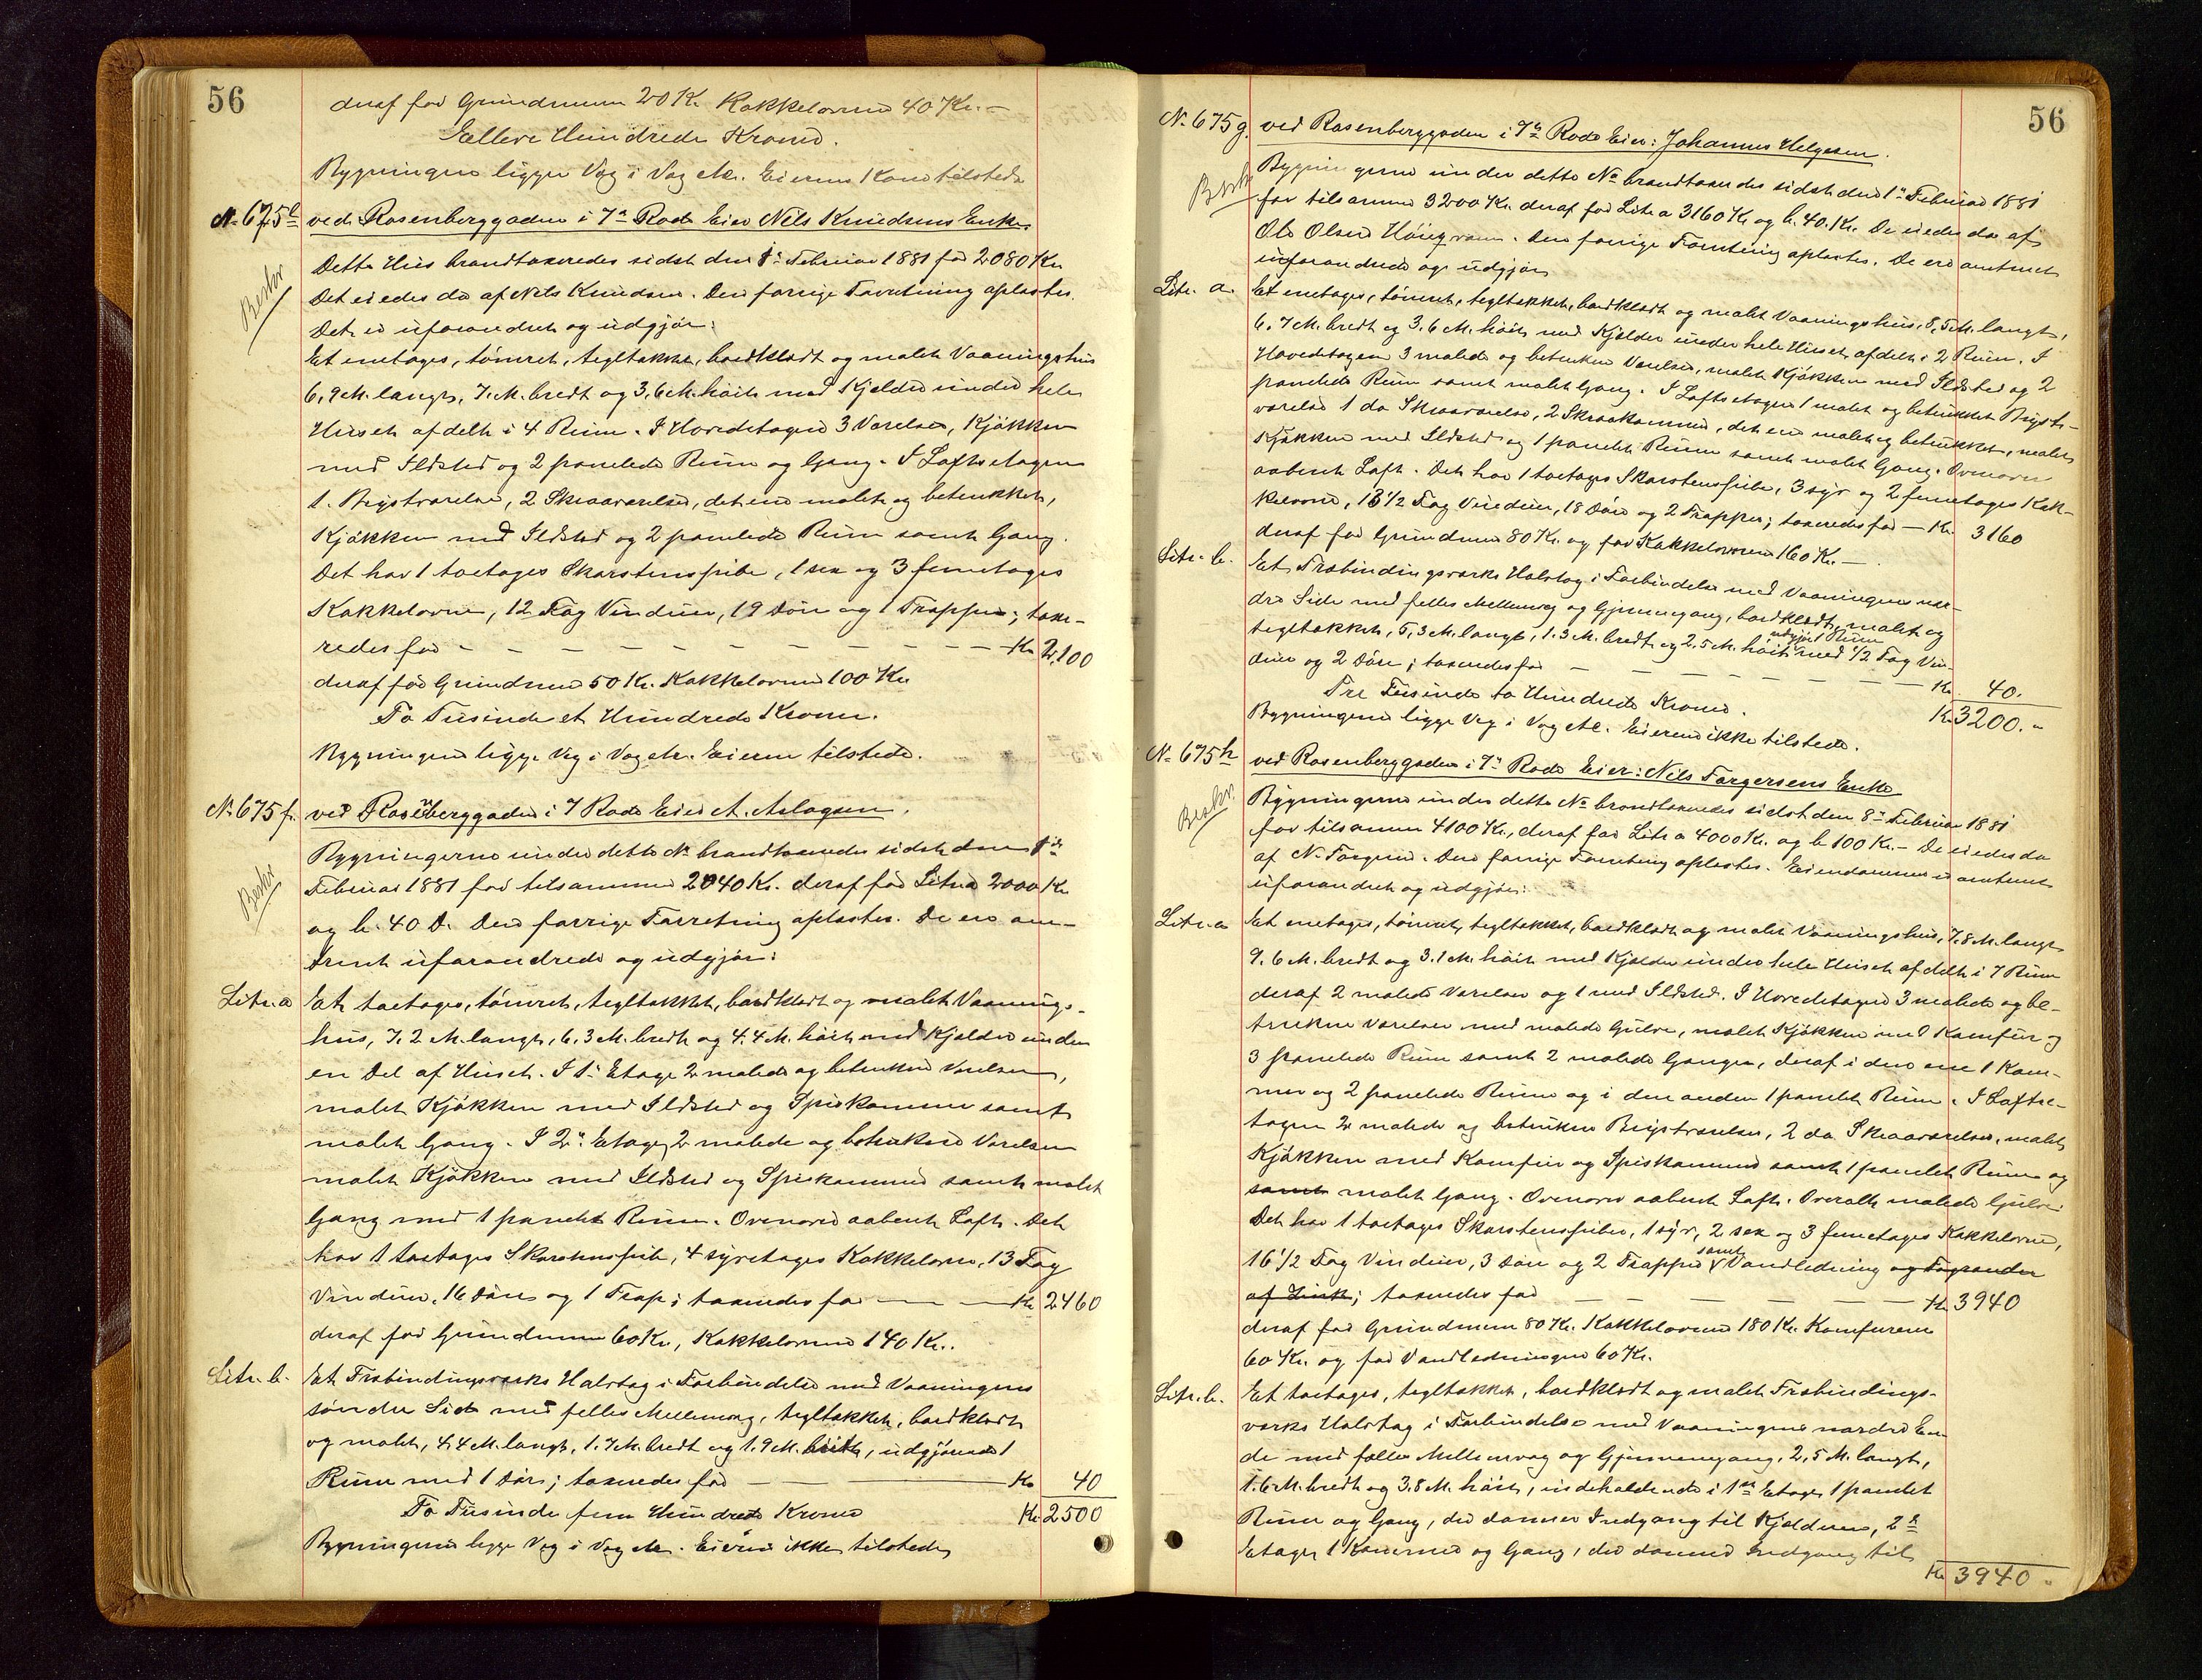 56
deraf for Grundmuren 20 Kr. Kakkelovnene 40 Kr. —
Elleve Hundrede Kroner.
Bygningen ligger Væg i Væg etc. Eierens Kone tilstede
No 675 e ved Rosenberggaden i 7de Rode Eier Nils Knudsens Enke
Beskr
Dette Hus brandtaxeredes sidst den 1ste Februar 1881 for 2080 Kr
Det eiedes da af Nils Knudsen. Den forrige Forretning oplæstes.
Det er uforandret og udgjør:
Et enetages, tømret, tegltækket, bordklædt og malet Vaaningshus
6,9 M. langt, 7. M. bredt og 3,6 M. høit med Kjelder under hele
Huset afdelt i 4 Rum. I Hovedetagen 3 Værelser, Kjøkken
med Ildsted og 2 panelede Rum og Gang. I Loftsetagen
1. Brystværelse, 2 Skraaværelser, det ene malet og betrukket,
Kjøkken med Ildsted og 2 panelede Rum samt Gang.
Det har 1 toetages Skorstenspibe, 1 sex og 3 femetages
Kakkelovne, 12 Fag Vinduer, 19 Døre og 1 Trappe; taxe-
redes for — — — Kr 2,100
deraf for Grundmuren 50 Kr. Kakkelovnene 100 Kr
To Tusinde et Hundrede Kroner.
Bygningen ligge Væg i Væg etc. Eieren tilstede.
No 675 f. ved Rosenberggaden i 7 Rode Eier A. Aslagsen.
Beskr
Bygningerne under dette No brandtaxeredes sidst den 1ste
Februar 1881 for tilsammen 2040 Kr. deraf for Litra a 2000 Kr
og b. 40 D. Den forrige Forretning oplæstes. De ere om-
trent uforandrede og udgjør:
Litr. a Et toetages, tømret, tegltækket, bordklædt og malet Vaanings-
hus, 7.2 M. langt, 6.3 M. bredt og 4.4 M. høit med Kjelder under
en Del af Huset. I 1ste Etage 2 malede og betrukne Værelser,
malet Kjøkken med Ildsted og Spiskammer samt
malet Gang. I 2den Etage 2 malede og betrukne Værelser
malet Kjøkken med Ildsted og Spiskammer samt malet
Gang med 1 panelet Rum. Ovenover aabent Loft. Det
har 1 toetages Skorstenspibe, 4 syvetages Kakkelovne, 13 Fag
Vinduer, 16 Døre og 1 Trap; taxeredes for — — Kr 2460
deraf for Grundmuren 60 Kr, Kakkelovnene 140 Kr.
Litr. b. Et Træbindingsværks Halvtag i Forbindelse med Vaaningens
søndre Side med fælles Mellemvæg, tegltækket, bordklædt
og malet, 4,4 M. langt, 1.7 M. bredt og 1.9 M. høit, udgjørende 1
Rum med 1 Dør; taxeredes for — Kr 40
To Tusinde fem Hundrede Kroner Kr 2500
Bygningerne ligge Væg i Væg etc. Eieren ikke tilstede
56
No 675 g. ved Rosenberggaden i 7de Rode Eier: Johannes Helgesen.
Beskr
Bygningerne under dette No brandtaxeredes sidst den 1ste Februar 1881
for tilsammen 3200 Kr. deraf for Litr a 3160 Kr og b. 40. Kr. De eiedes da af
Ole Olsen . Den forrige Forretning oplæstes. De ere omtrent
uforandrede og udgjør
Litr. a. Et enetages, tømret, tegltækket, bordklædt og malet Vaaningshus, 8,5 M. langt,
6,7 M. bredt og 3.6 M. høit med Kjelder under hele Huset, afdelt i 2 Rum. I
Hovedetagen 3 malede og betrukne Værelser, malet Kjøkken med Ildsted og 2
panelede Rum samt malet Gang. I Loftsetagen 1 malet og betrukket Bryst-
værelse 1 do Skraaværelse, 2 Skraakammer, det ene malet og betrukket, malet
Kjøkken med Ildsted og 1 panelet Rum samt malet Gang. Ovenover
aabent Loft. Det har 1 toetages Skorstenspibe, 3 syv og 2 femetages Kak-
kelovne, 13 1/2 Fag Vinduer, 18 Døre og 2 Trapper; taxeredes for — Kr. 3160
deraf for Grundmuren 80 Kr. og for Kakkelovnene 160 Kr. —
Litr. b. Et Træbindingsværks Halvtag i Forbindelse med Vaaningens nor-
dre Side med fælles Mellemvæg og Gjennemgang, bordklædt, malet og
tegltækket, 5,3 M. langt, 1.3 M. bredt og 2.5 M. høit udgjør 1 Rum med 1/2 Fag Vin-
duer og 2 Døre; taxeredes for — — — Kr. 40.
Tre Tusinde to Hundrede Kroner. Kr 3200.
Bygningerne ligge Væg i Væg etc. Eieren ikke tilstede.
No 675 h ved Rosenberggaden i 7de Rode Eier: Nils Torgersens Enke
Beskr.
Bygningerne under dette No brandtaxeredes sidst den 8de Februar 1881
for tilsammen 4100 Kr., deraf for Litr a 4000 Kr. og b 100 Kr. — De eiedes da
af N. Torgersen. Den forrige Forretning oplæstes. Eiendommen er omtrent
uforandret og udgjør:
Litr. a Et enetages, tømret, tegltækket, bordklædt og malet Vaaningshus, 7.8 M. langt
9.6 M. bredt og 3.1 M. høit med Kjelder under hele Huset afdelt i 7 Rum
deraf 2 malede Værelser og 1 med Ildsted. I Hovedetagen 3 malede og be-
trukne Værelser med malede Gulve, malet Kjøkken med Komfur og
3 panelede Rum samt 2 malede Gange, deraf i den ene 1 Kam-
mer og 2 panelede Rum og i den anden 1 panelet Rum. I Loftse-
tagen 2 malede og betrukne Brystværelser, 2 do. Skraaværelser, malet
Kjøkken med Komfur og Spiskammer samt 1 panelet Rum og
samt malet Gang. Ovenover aabent Loft. Overalt malede Gulve.
Det har 1 toetages Skorstenspibe, 1 syv, 2 sex og 3 femetages Kakkelovne,
16 1/2 Fag Vinduer, 3 Døre og 2 Trapper samt Vandledning og Tagrender
af Zink; taxeredes for — — — Kr. 3940
deraf for Grundmuren 80 Kr. Kakkelovnene 180 Kr. Komfurene
60 Kr. og for Vandledningen 60 Kr.
Litr. b. Et toetages, tegltækket, bordklædt og malet Træbindings-
værks Halvtag i Forbindelse med Vaaningens nordre En-
de med fælles Mellemvæg og Gjennemgang, 2,5 M. langt,
1.6 M. bredt og 3.8 M. høit, indeholdende i 1ste Etage 1 panelet
Rum og Gang, der danner Indgang til Kjelderen, 2den
Etage 1 Kammer og Gang, der danner Indgang til
Kr 3940